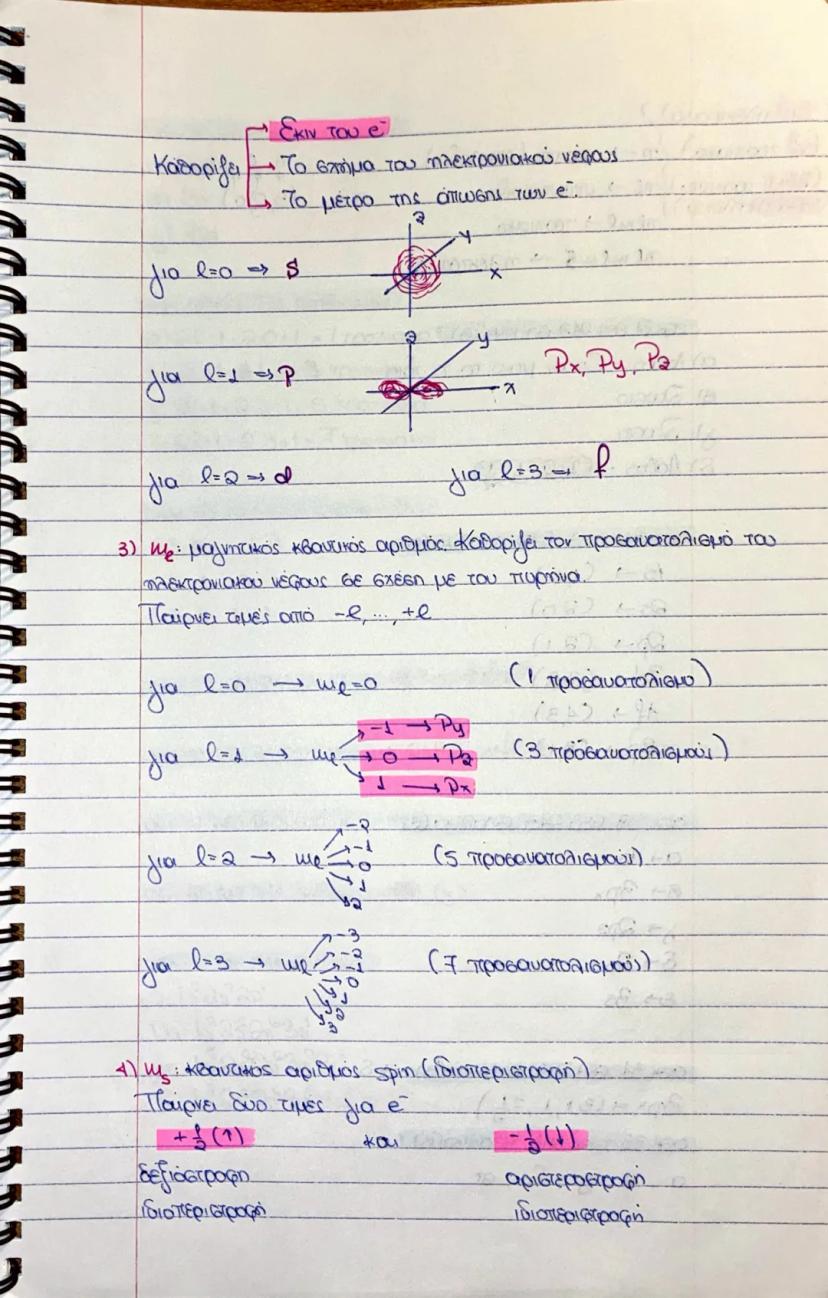 Εκιν του e⁻
Καθορίζει → Το σχήμα του ηλεκτρονιακού νέφους
→ Το μέτρο της άπωσης των e⁻.
z
y
για l=0 => s
x
z
y
για l=1 => p
x
Px, Py, Pz
για l=2 → d για l=3 → f
3) mℓ: μαγνητικός κβαντικός αριθμός. Καθορίζει τον προσανατολισμό του
ηλεκτρονιακού νέφους σε σχέση με του πυρήνα.
Παίρνει τιμές από -l, ..., +l
για l=0 → mℓ=0 (1 προσανατολισμό)
-1 → Py
για l=1 → mℓ 0 → Pz (3 προσανατολισμούς)
1 → Px
-2
-1
για l=2 → mℓ 0 (5 προσανατολισμούς)
1
2
-3
-2
για l=3 → mℓ -1 (7 προσανατολισμούς)
0
1
2
3
4) ms: κβαντικός αριθμός spin (ιδιοπεριστροφή)
Παίρνει δύο τιμές για e⁻
+1/2 (↑) και -1/2 (↓)
δεξιόστροφη αριστεροστροφη
ιδιοπεριστροφή ιδιοπεριστροφή